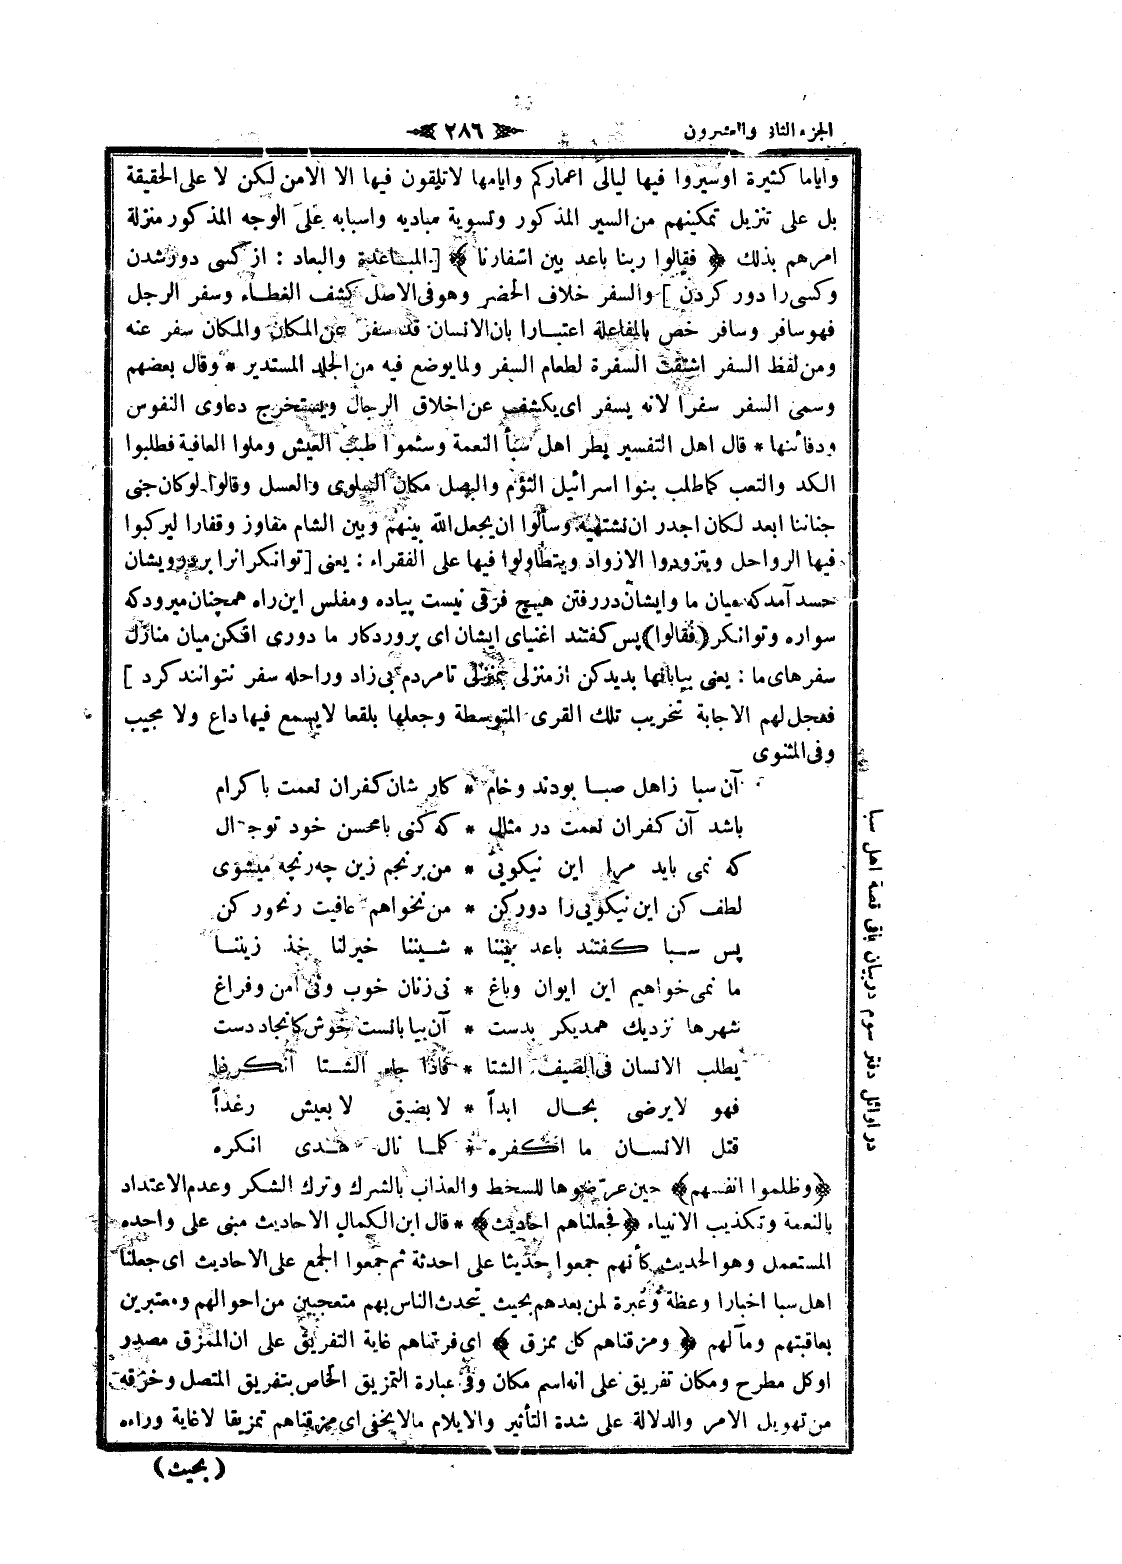 الجزء الثانى والعشرون
﴿ ٢٨٦ ﴾
واياما كثيرة اوسيروا فيها ليالى اعماركم وايامها لاتلقون فيها الا الامن لكن لا على الحقيقة
بل على تنزيل تمكينهم من السير المذكور وتسوية مباديه واسبابه على الوجه المذكور منزلة
امرهم بذلك ﴿ فقالوا ربنا باعد بين اسفارنا ﴾ [ المباعدة والبعاد : از كسى دور شدن
وكسى را دور كردن ] والسفر خلاف الحضر وهو فى الاصل كشف الغطاء وسفر الرجل
فهو سافر وسافر خص بالمفاعلة اعتبارا بان الانسان قد سفر عن المكان والمكان سفر عنه
ومن لفظ السفر اشتقت السفرة لطعام السفر ولما يوضع فيه من الجلد المستدير * وقال بعضهم
وسمى السفر سفرا لانه يسفر اى يكشف عن اخلاق الرجال ويستخرج دعاوى النفوس
ودفائنها * قال اهل التفسير بطر اهل سبأ النعمة وسئموا طيب العيش وملوا العافية فطلبوا
الكد والتعب كما طلب بنوا اسرائيل الثؤم والبصل مكان السلوى والعسل وقالوا لوكان جنى
جناننا ابعد لكان اجدر ان نشتهيه وسألوا ان يجعل الله بينهم وبين الشام مفاوز وقفارا ليركبوا
فيها الرواحل ويتزودوا الازواد ويتطاولوا فيها على الفقراء : يعنى [ توانكرانرا بر درويشان
حسد آمد كه ميان ما وايشان در رفتن هيچ فرقى نيست پياده ومفلس اين راه همچنان ميرود كه
سواره وتوانكر (فقالوا) پس كفتند اغنياى ايشان اى پروردكار ما دورى افكن ميان منازل
سفرهاى ما : يعنى بيابانها پديد كن از منزلى بمنزلى تا مردم بى زاد وراحله سفر نتوانند كرد ]
فعجل لهم الاجابة بتخريب تلك القرى المتوسطة وجعلها بلقعا لايسمع فيها داع ولا مجيب
وفى المثنوى
آن سبا زاهل صبا بودند وخام * كار شان كفران نعمت با كرام
باشد آن كفران نعمت در مثال * كه كنى با محسن خود تو جدال
كه نمى بايد مرا اين نيكويى * من برنجم زين چه رنجه ميشوى
لطف كن اين نيكويى را دور كن * من نخواهم عافيت رنجور كن
پس سبا كفتند باعد بيننا * شيننا خير لنا خذ زيننا
ما نمى خواهيم اين ايوان وباغ * نى زنان خوب ونى امن وفراغ
شهرها نزديك همديكر بدست * آن بيابانست خوش كانجاددست
يطلب الانسان فى الصيف الشتا * فاذا جاء الشتا انكر ذا
فهو لايرضى بحال ابداً * لا بضيق لا بعيش رغداً
قتل الانسان ما اكفره * كلما نال هدى انكره
﴿وظلموا انفسهم﴾ حين عرضوها للسخط والعذاب بالشرك وترك الشكر وعدم الاعتداد
بالنعمة وتكذيب الانبياء ﴿فجعلناهم احاديث﴾ * قال ابن الكمال الاحاديث مبنى على واحده
المستعمل وهو الحديث كأنهم جمعوا حديثا على احدثة ثم جمعوا الجمع على الاحاديث اى جعلنا
اهل سبا اخبارا وعظة وعبرة لمن بعدهم بحيث يتحدث الناس بهم متعجبين من احوالهم ومعتبرين
بعاقبتهم ومآلهم ﴿ ومزقناهم كل ممزق ﴾ اى فرقناهم غاية التفريق على ان الممزق مصدر
اوكل مطرح ومكان تفريق على انه اسم مكان وفى عبارة التمزيق الخاص بتفريق المتصل وخرقه
من تهويل الامر والدلالة على شدة التأثير والايلام ما لا يخفى اى مزقناهم تمزيقا لا غاية وراءه
(بحيث)
در اوائل دفتر سوم دربيان باقى قصة اهل سبا